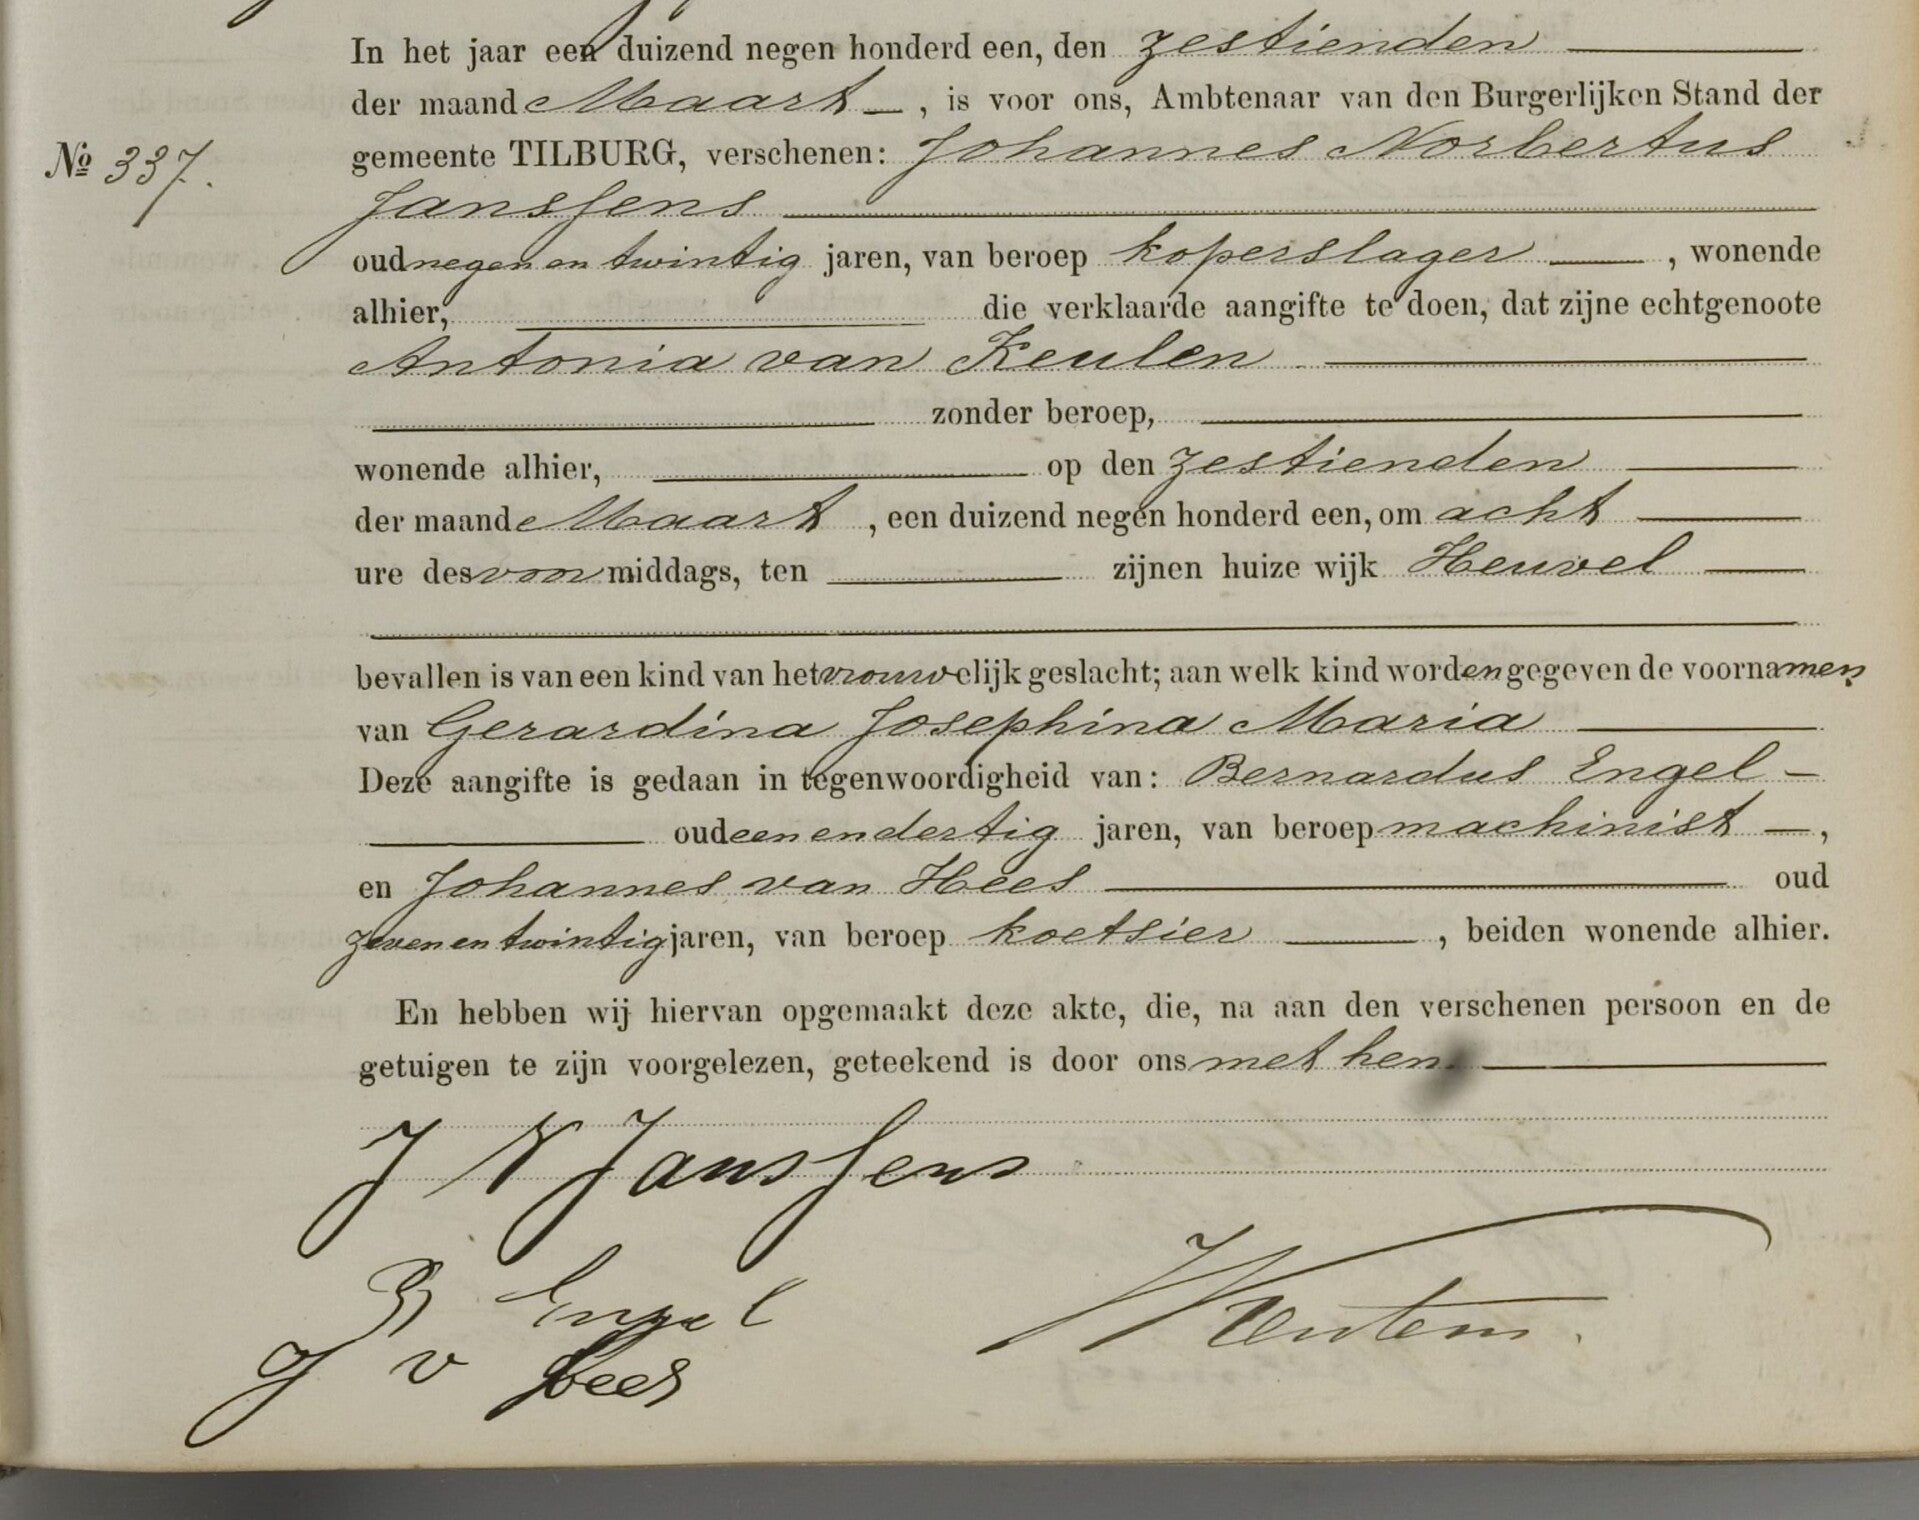 In het jaar een duizend negen honderd een, den zestienden
der maand Maart, is voor ons, Ambtenaar van den Burgerlijken Stand der
No 337.
gemeente TILBURG, verschenen: Johannes Norbertus
Janssens
oud negen en twintig jaren, van beroep koperslager, wonende
alhier, die verklaarde aangifte te doen, dat zijne echtgenoote
Antonia van Keulen
zonder beroep,
wonende alhier, op den zestienden
der maand Maart, een duizend negen honderd een, om acht
ure des voormiddags, ten zijnen huize wijk Heuvel
bevallen is van een kind van het vrouwelijk geslacht; aan welk kind worden gegeven de voornamen
van Gerardina Josephina Maria
Deze aangifte is gedaan in tegenwoordigheid van: Bernardus Engel
oud een en dertig jaren, van beroep machinist,
en Johannes van Hees oud
zeven en twintig jaren, van beroep koetsier, beiden wonende alhier.
En hebben wij hiervan opgemaakt deze akte, die, na aan den verschenen persoon en de
getuigen te zijn voorgelezen, geteekend is door ons met hen.
J N Janssens
B Engel
J v Hees